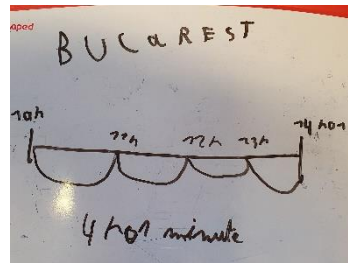 aped
BUCaREST
10h 11h 12h 13h 14h01
4h01 minute